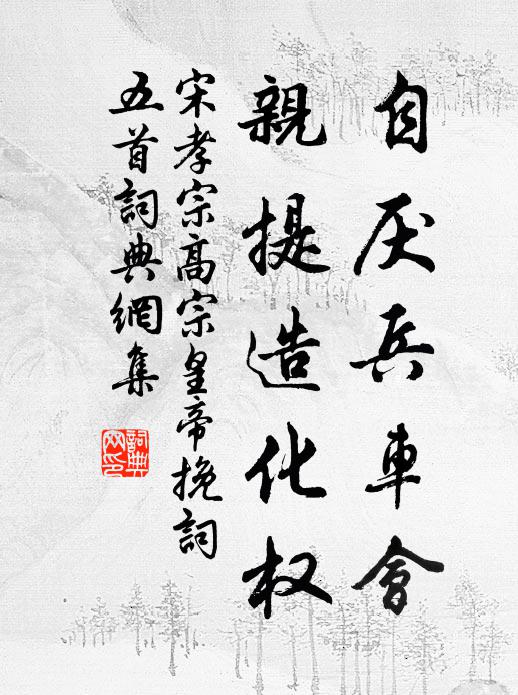 自厌兵車會
親提造化权
宋孝宗高宗皇帝挽詞
五首詞典網集
詞典
网印